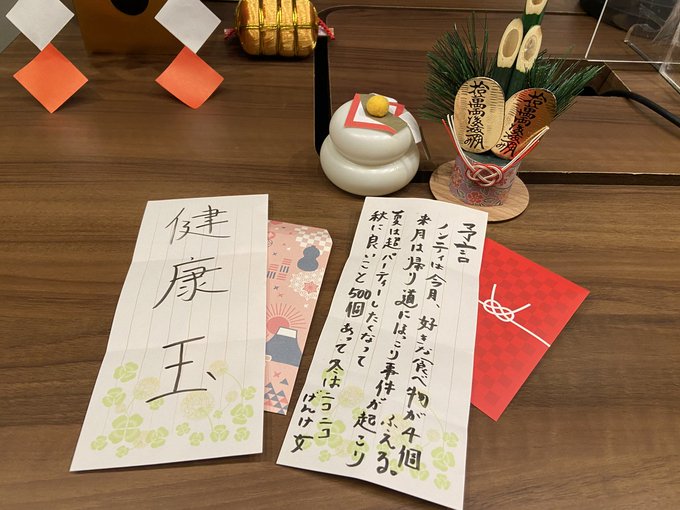 健康玉
予言
ノンティは今月、好きな食べ物が4個
ふえる。
来月は帰り道にほっこり事件が起こり
夏は超パーティーしたくなって
秋に良いこと500個あって冬はニコニコ
げんけ女